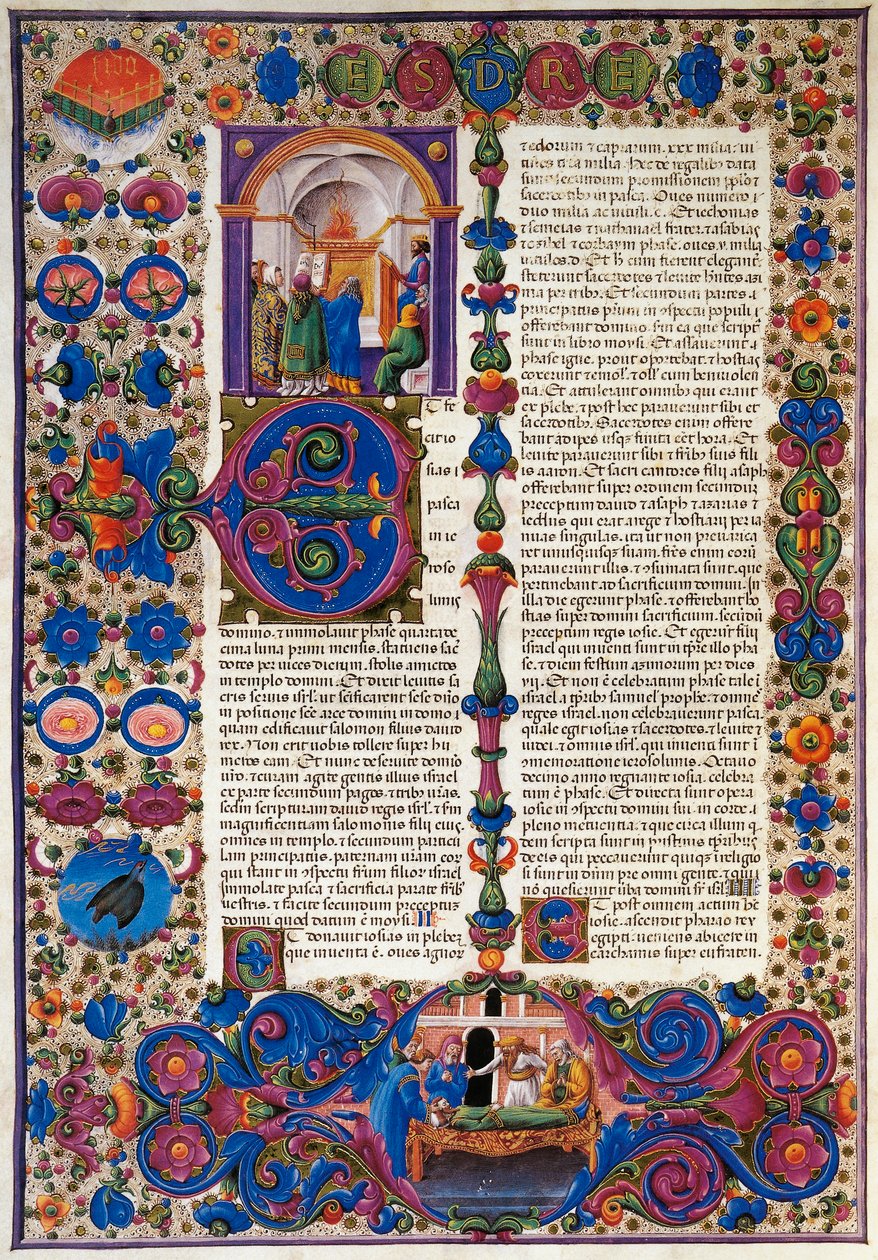 FIDO
ESDRE
T fe
cit io
sias i
pasca
in ie
roso
limis
domino. ⁊ immolavit phase quarta de
cima luna primi mensis. statuens sac̄
dotes per vices dierum. stolis amictos
in templo domini. Et dixit levitis sa
cris servis isrl̄. ut sc̄ificarent sese dn̄o
in positione sc̄e arce domini in domo i
quam edificavit salomon filius david
rex. Non erit vobis tollere super hu
meros eam. Et nunc deservite domio
vr̄o. ⁊ curam agite gentis illius israel
ex parte secundum pagos. ⁊ tribꝰ vr̄as.
sedm̄ scripturam david regis isrl̄. ⁊ sm̄
magnificentiam salomonis filii eius.
omnes in templo. ⁊ secundum particu
lam principatus. paternam vr̄am eor̄
qui stant in ꝯspectu frūm filior̄ israel
immolate pasca ⁊ sacrificia parate fr̄ibꝰ
vestris. ⁊ facite secundum preceptuꝫ
domini quod datum ē moysi. II
T donavit iosias in plebeꝫ
que inventa ē. oves agnor̄
⁊ edorum ⁊ caprarum. xxx milia. vi
tulos tria milia. hec de regalibꝰ data
sunt secundum promissionem ppl̄o ⁊
sacerdotibꝰ in pasca. Oves numero i
duo milia ac vituli. c. Et iechonias
⁊ semeias ⁊ nathanael frater. ⁊ asabias
⁊ oziel ⁊ corbaym phase. oves. v. milia
vitulos. d. Et hec cum fierent elegant̄
steterunt sacerdotes ⁊ levite hn̄tes azi
ma per tribꝰ. Et secundum partes i
principatus prum in ꝯspectu populi i
offerebant domino. sm̄ ea que script̄
sunt in libro moysi. Et assaverunt i
phase igne. prout oportebat. ⁊ hostias
coxerunt
ex plebe. ⁊ post hec paraverunt sibi et
sacerdotibꝰ. Sacerdotes enim offere
bant adipes usqꝫ finita cēt hora. Et
levite paraverunt sibi ⁊ fr̄ibꝰ suis fili
is aaron. Et sacri cantores filii asaph
offerebant super ordinem secunduꝫ
preceptum david ⁊ asaph ⁊ azarias ⁊
ieddus qui erat a rege ⁊ hostiarii per ia
nuas singulas. ita ut non prevarica
ret unusquisqꝫ suam. frēs enim eor̄
paraverunt illis. ⁊ ꝯsumata sunt. que
pertinebant ad sacrificium domini. In
illa die egerunt phase. ⁊ offerebant ho
stias super domini sacrificium. secūdū
preceptum regis iosie. Et egerūt filii
israel qui inventi sunt in tpr̄e illo pha
se. ⁊ diem festum azimorum per dies
vij. Et non ē celebratum phase tale i
israel a tpr̄ibꝰ samuel prophe. ⁊ omnes
reges israel. non celebraverunt pasca
quale egit iosias ⁊ sacerdotes. ⁊ levite ⁊
iudei. ⁊ omnis isrl̄. qui inventi sunt ī
ꝯmemoratione ierosolimis. Octavo
decimo anno regnante iosia. celebra
tum ē phase. Et directa sunt opera
iosie in ꝯspectu domini sui. in corde i
pleno metuentia. ⁊ que circa illum q̄
dem scripta sunt in pristinis tpr̄ibus
de eis qui peccaverunt quiqꝫ irreligio
si sunt in dn̄m pre omni gente. ⁊ qui
nō quesierunt verba domini sr̄ isrl̄. III
T post omnem actum hc̄
iosie. ascendit pharao rex
egipti. veniens abicere in
carchamis super eufraten.